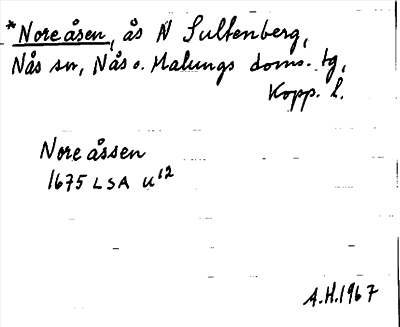 *Noreåsen, ås N Sultenberg,
Nås sn, Nås o. Malungs doms. tg,
Kopp. l.
Nore åssen
1675 LSA U12
A.H. 1967